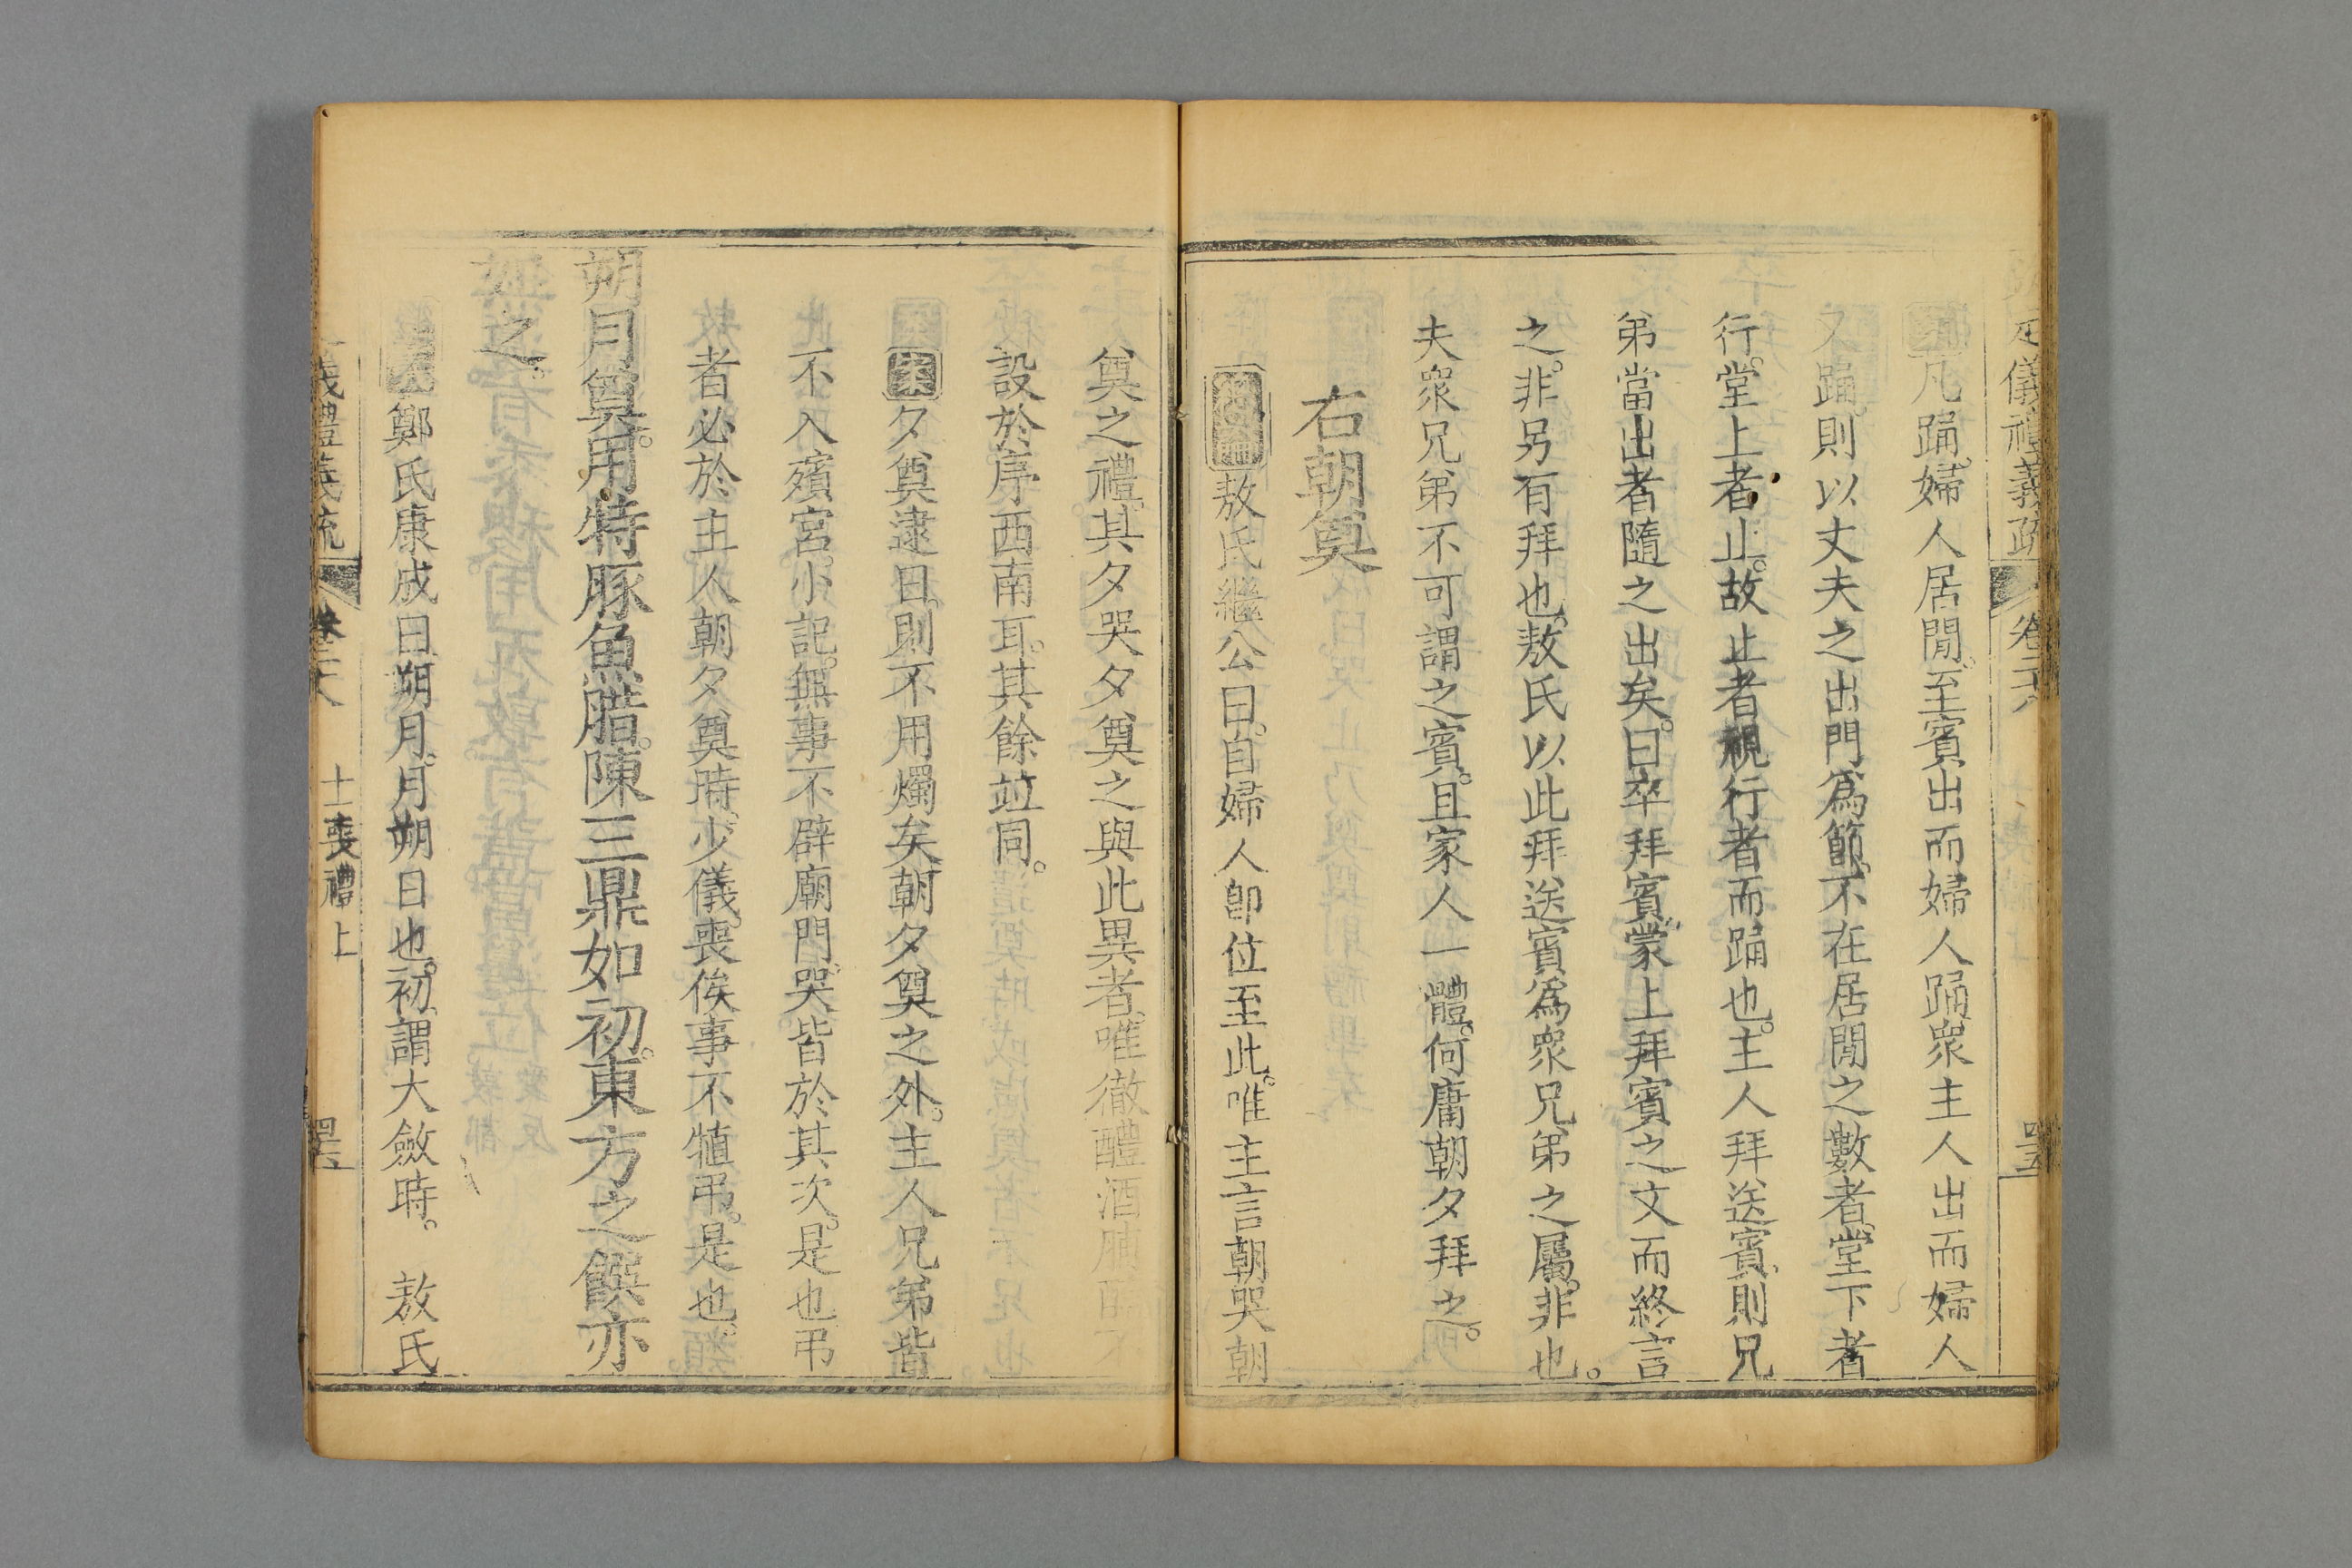 儀禮義疏 卷二六
凡踊婦人居閒。至賓出而婦人踊衆主人出而婦人
又踊則以丈夫之出門爲節。不在居閒之數者堂下者
行。堂上者止。故止者視行者而踊也。主人拜送賓則兄
弟當出者隨之出矣。曰卒拜賓蒙上拜賓之文而終言
之。非另有拜也。敖氏以此拜送賓爲衆兄弟之屬。非也。
夫衆兄弟不可謂之賓。且家人一體。何庸朝夕拜之。
右朝奠
敖氏繼公曰。自婦人卽位至此。唯主言朝哭朝
奠之禮其夕哭夕奠之與此異者唯徹醴酒脯
設於序西南耳。其餘竝同。
案夕奠逮日。則不用燭矣朝夕奠之外。主人兄弟皆
不入殯宮。小記。無事不辟廟門。哭皆於其次。是也弔
者必於主人朝夕奠時。少儀。喪俟事不犆弔。是也。
朔月奠。用特豚魚腊。陳三鼎如初。東方之饌亦
之。
鄭氏康成曰朔月。月朔日也。初。謂大斂時。 敖氏
義禮義疏 卷二六 士喪禮上